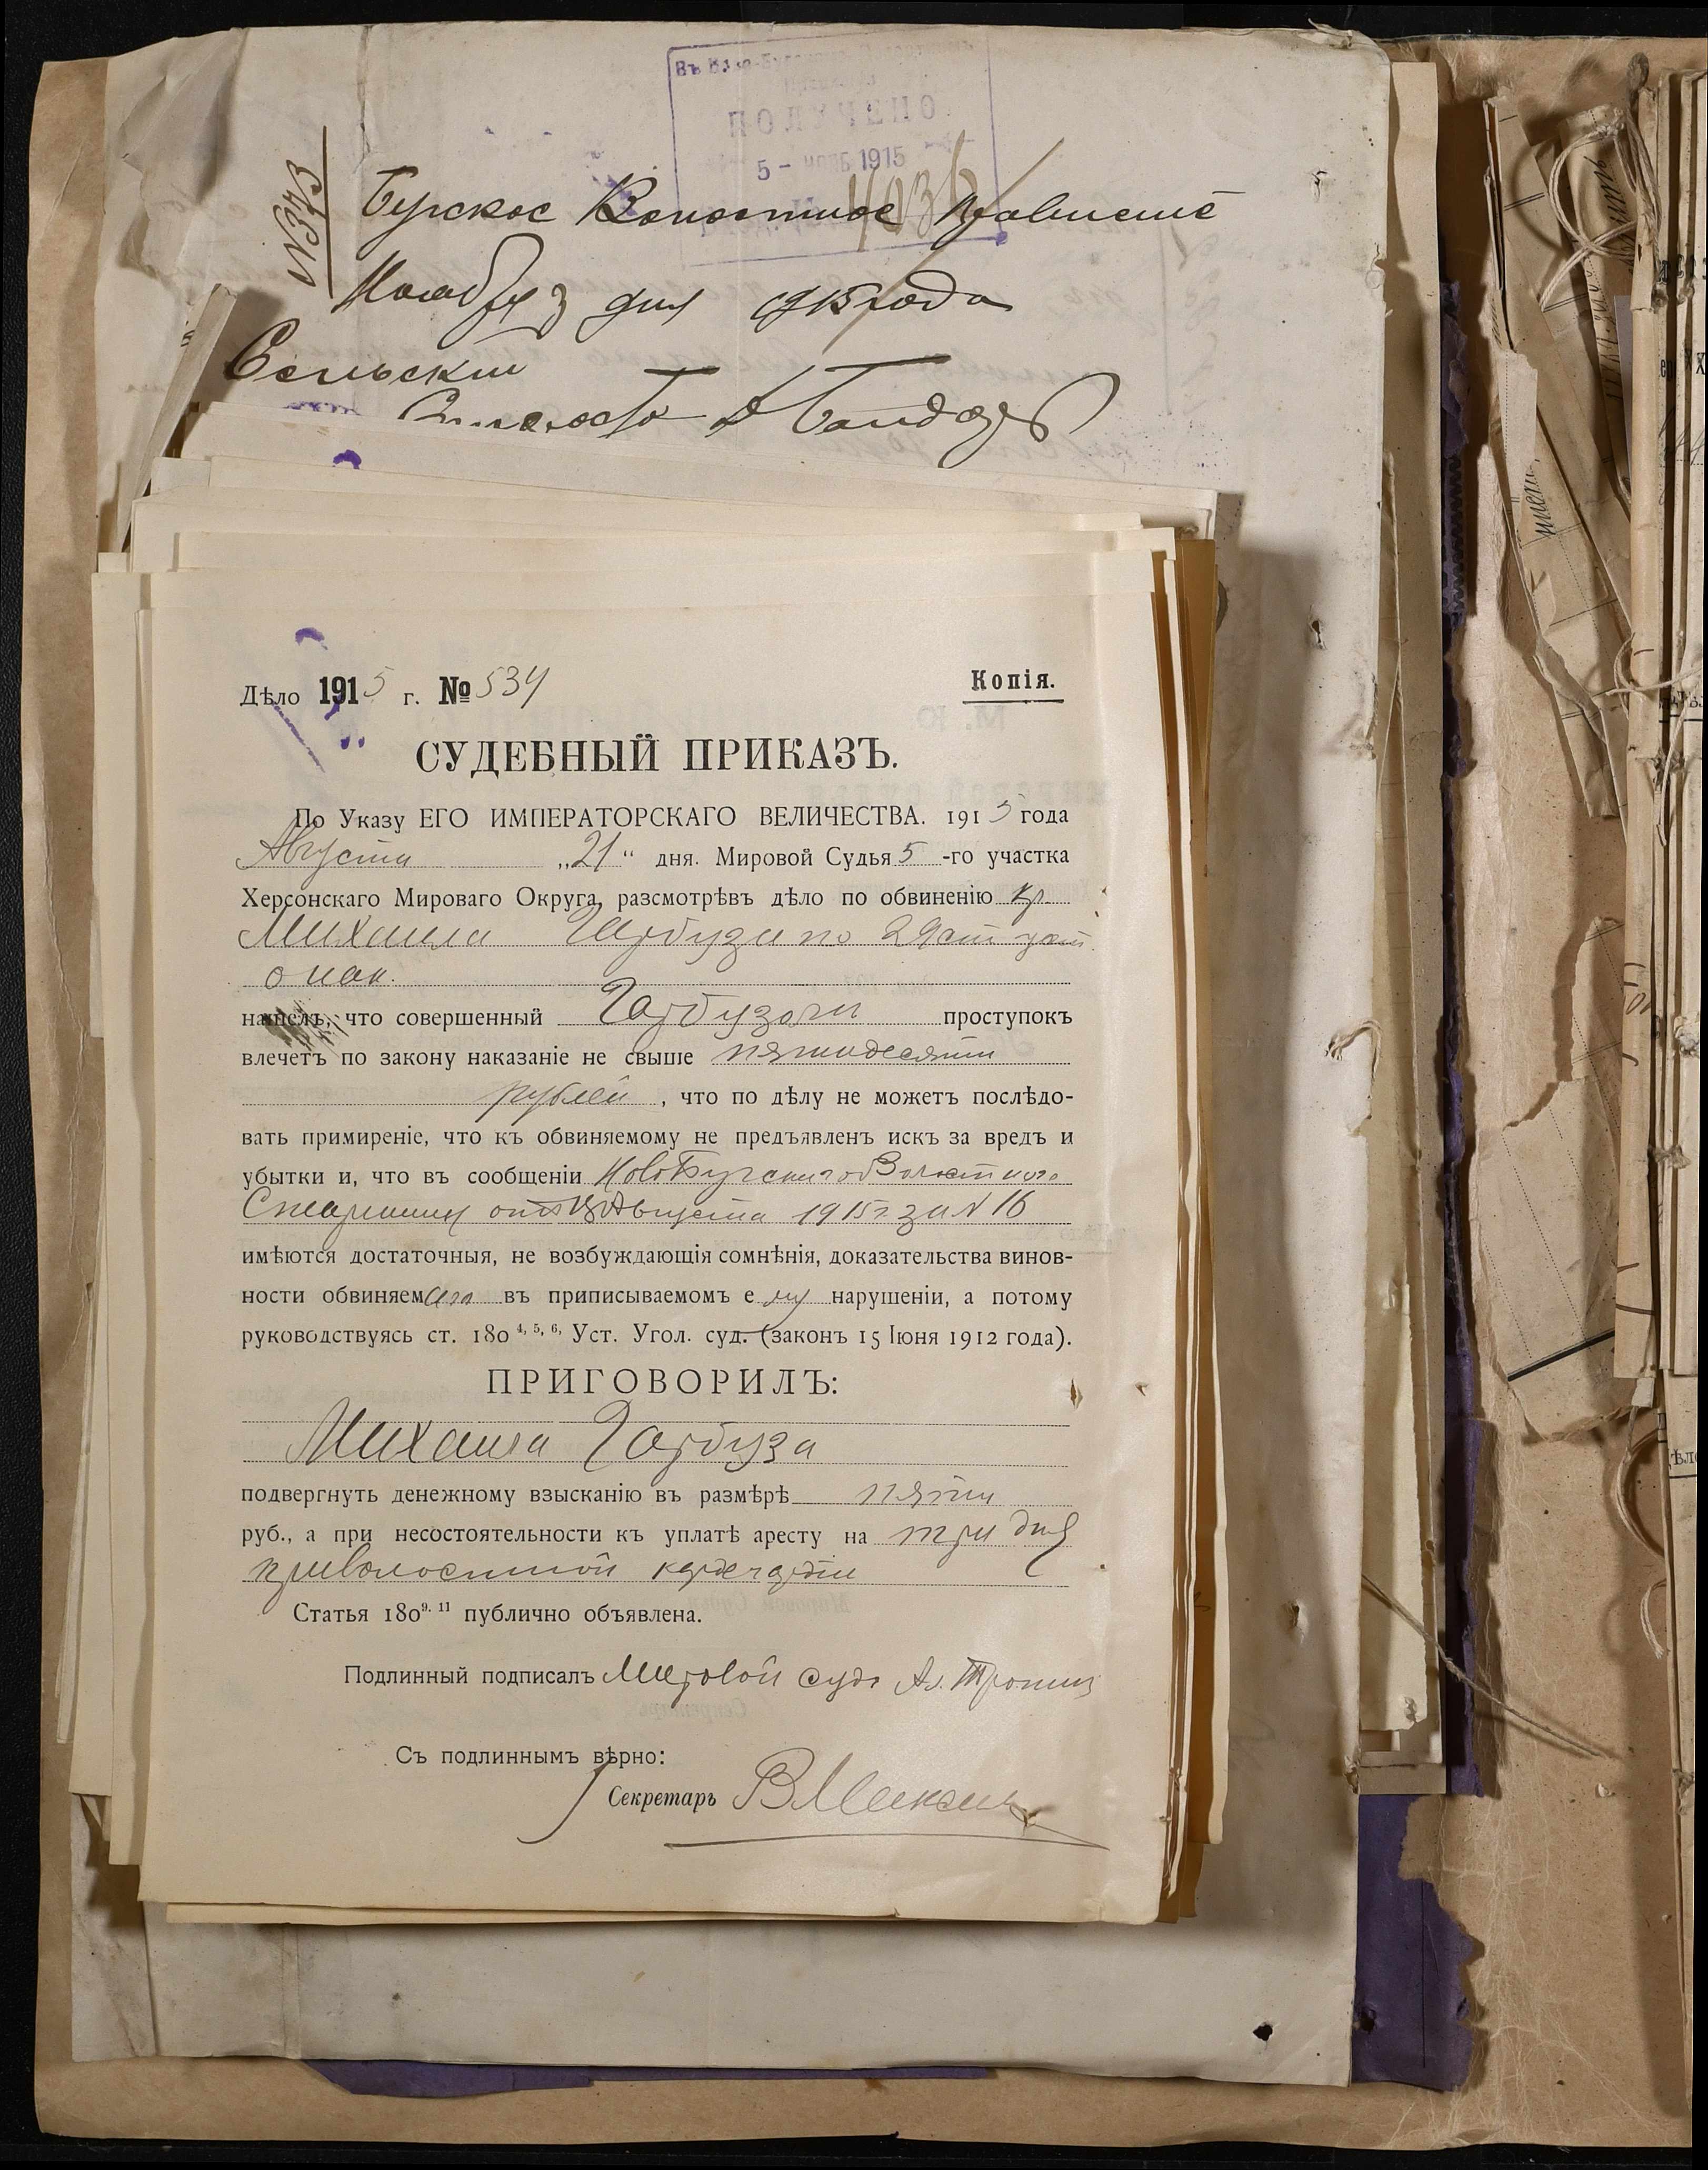 Въ Ново-Буг
ПОЛУЧЕНО
5 - НОЯБ 1915
№373
Бугское Волостное Правление
Ноября 3 дня 1915 года
Сельский
Староста
Дѣло 1915 г. № 534
Копія.
СУДЕБНЫЙ ПРИКАЗЪ.
По Указу ЕГО ИМПЕРАТОРСКАГО ВЕЛИЧЕСТВА. 1915 года
Августа „21“ дня. Мировой Судья 5-го участка
Херсонскаго Мироваго Округа, разсмотрѣвъ дѣло по обвиненію кр.
Михаила Гарбуза по 29 ст уст.
о нак.
нашелъ, что совершенный Гарбузом проступокъ
влечетъ по закону наказаніе не свыше пятидесяти
рублей, что по дѣлу не можетъ послѣдо-
вать примиреніе, что къ обвиняемому не предъявленъ искъ за вредъ и
убытки и, что въ сообщеніи Ново Бугскаго Волостного
Старшины от Августа 1915 г. за № 16
имѣются достаточныя, не возбуждающія сомнѣнія, доказательства винов-
ности обвиняемаго въ приписываемомъ ему нарушеніи, а потому
руководствуясь ст. 180 4, 5, 6, Уст. Угол. суд. (законъ 15 Іюня 1912 года).
ПРИГОВОРИЛЪ:
Михаила Гарбуза
подвергнуть денежному взысканію въ размѣрѣ пяти
руб., а при несостоятельности къ уплатѣ аресту на три дня
при волостной кордегардіи
Статья 180 9. 11 публично объявлена.
Подлинный подписалъ Мировой судья Ал.
Съ подлиннымъ вѣрно:
Секретарь